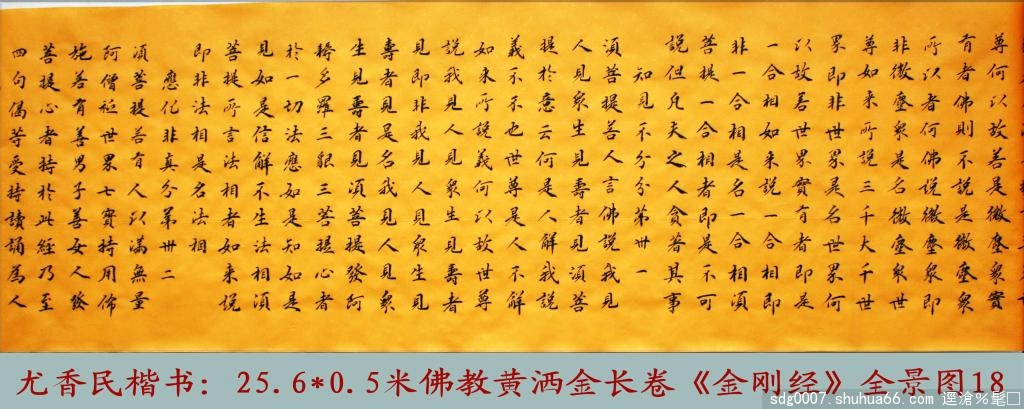 尊何以故善是微塵衆實
有者佛則不說是微塵衆
所以者何佛說微塵衆即
非微塵衆是名微塵衆世
尊如来所說三千大千世
界即非世界是名世界何
以故善世界實有者即是
一合相如来說一合相即
非一合相是名一合相須
菩提一合相者即是不可
說但凡夫之人貪著其事
知見不分分第卅一
須菩提善人言佛說我見
人見衆生見壽者見須菩
提於意云何是人解我說
義示不也世尊是人不解
如来所說義何以故世尊
說我見人見衆生見壽者
見即非我見人見衆生見
壽者見是名我見人見衆
生見壽者見須菩提發阿
耨多羅三貌三菩提心者
於一切法應如是知如是
見如是信解不生法相須
菩提所言法相者如来說
即非法相是名法相
應化非真分第卅二
須菩提善有人以滿無量
阿僧祗世界七寶持用佈
施善有善男子善女人發
菩提心者持於此經乃至
四句偈等受持讀誦為人
尤香民楷书：25.6*0.5米佛教黄洒金长卷《金刚经》全景图18
sdg0007.shuhua66.com